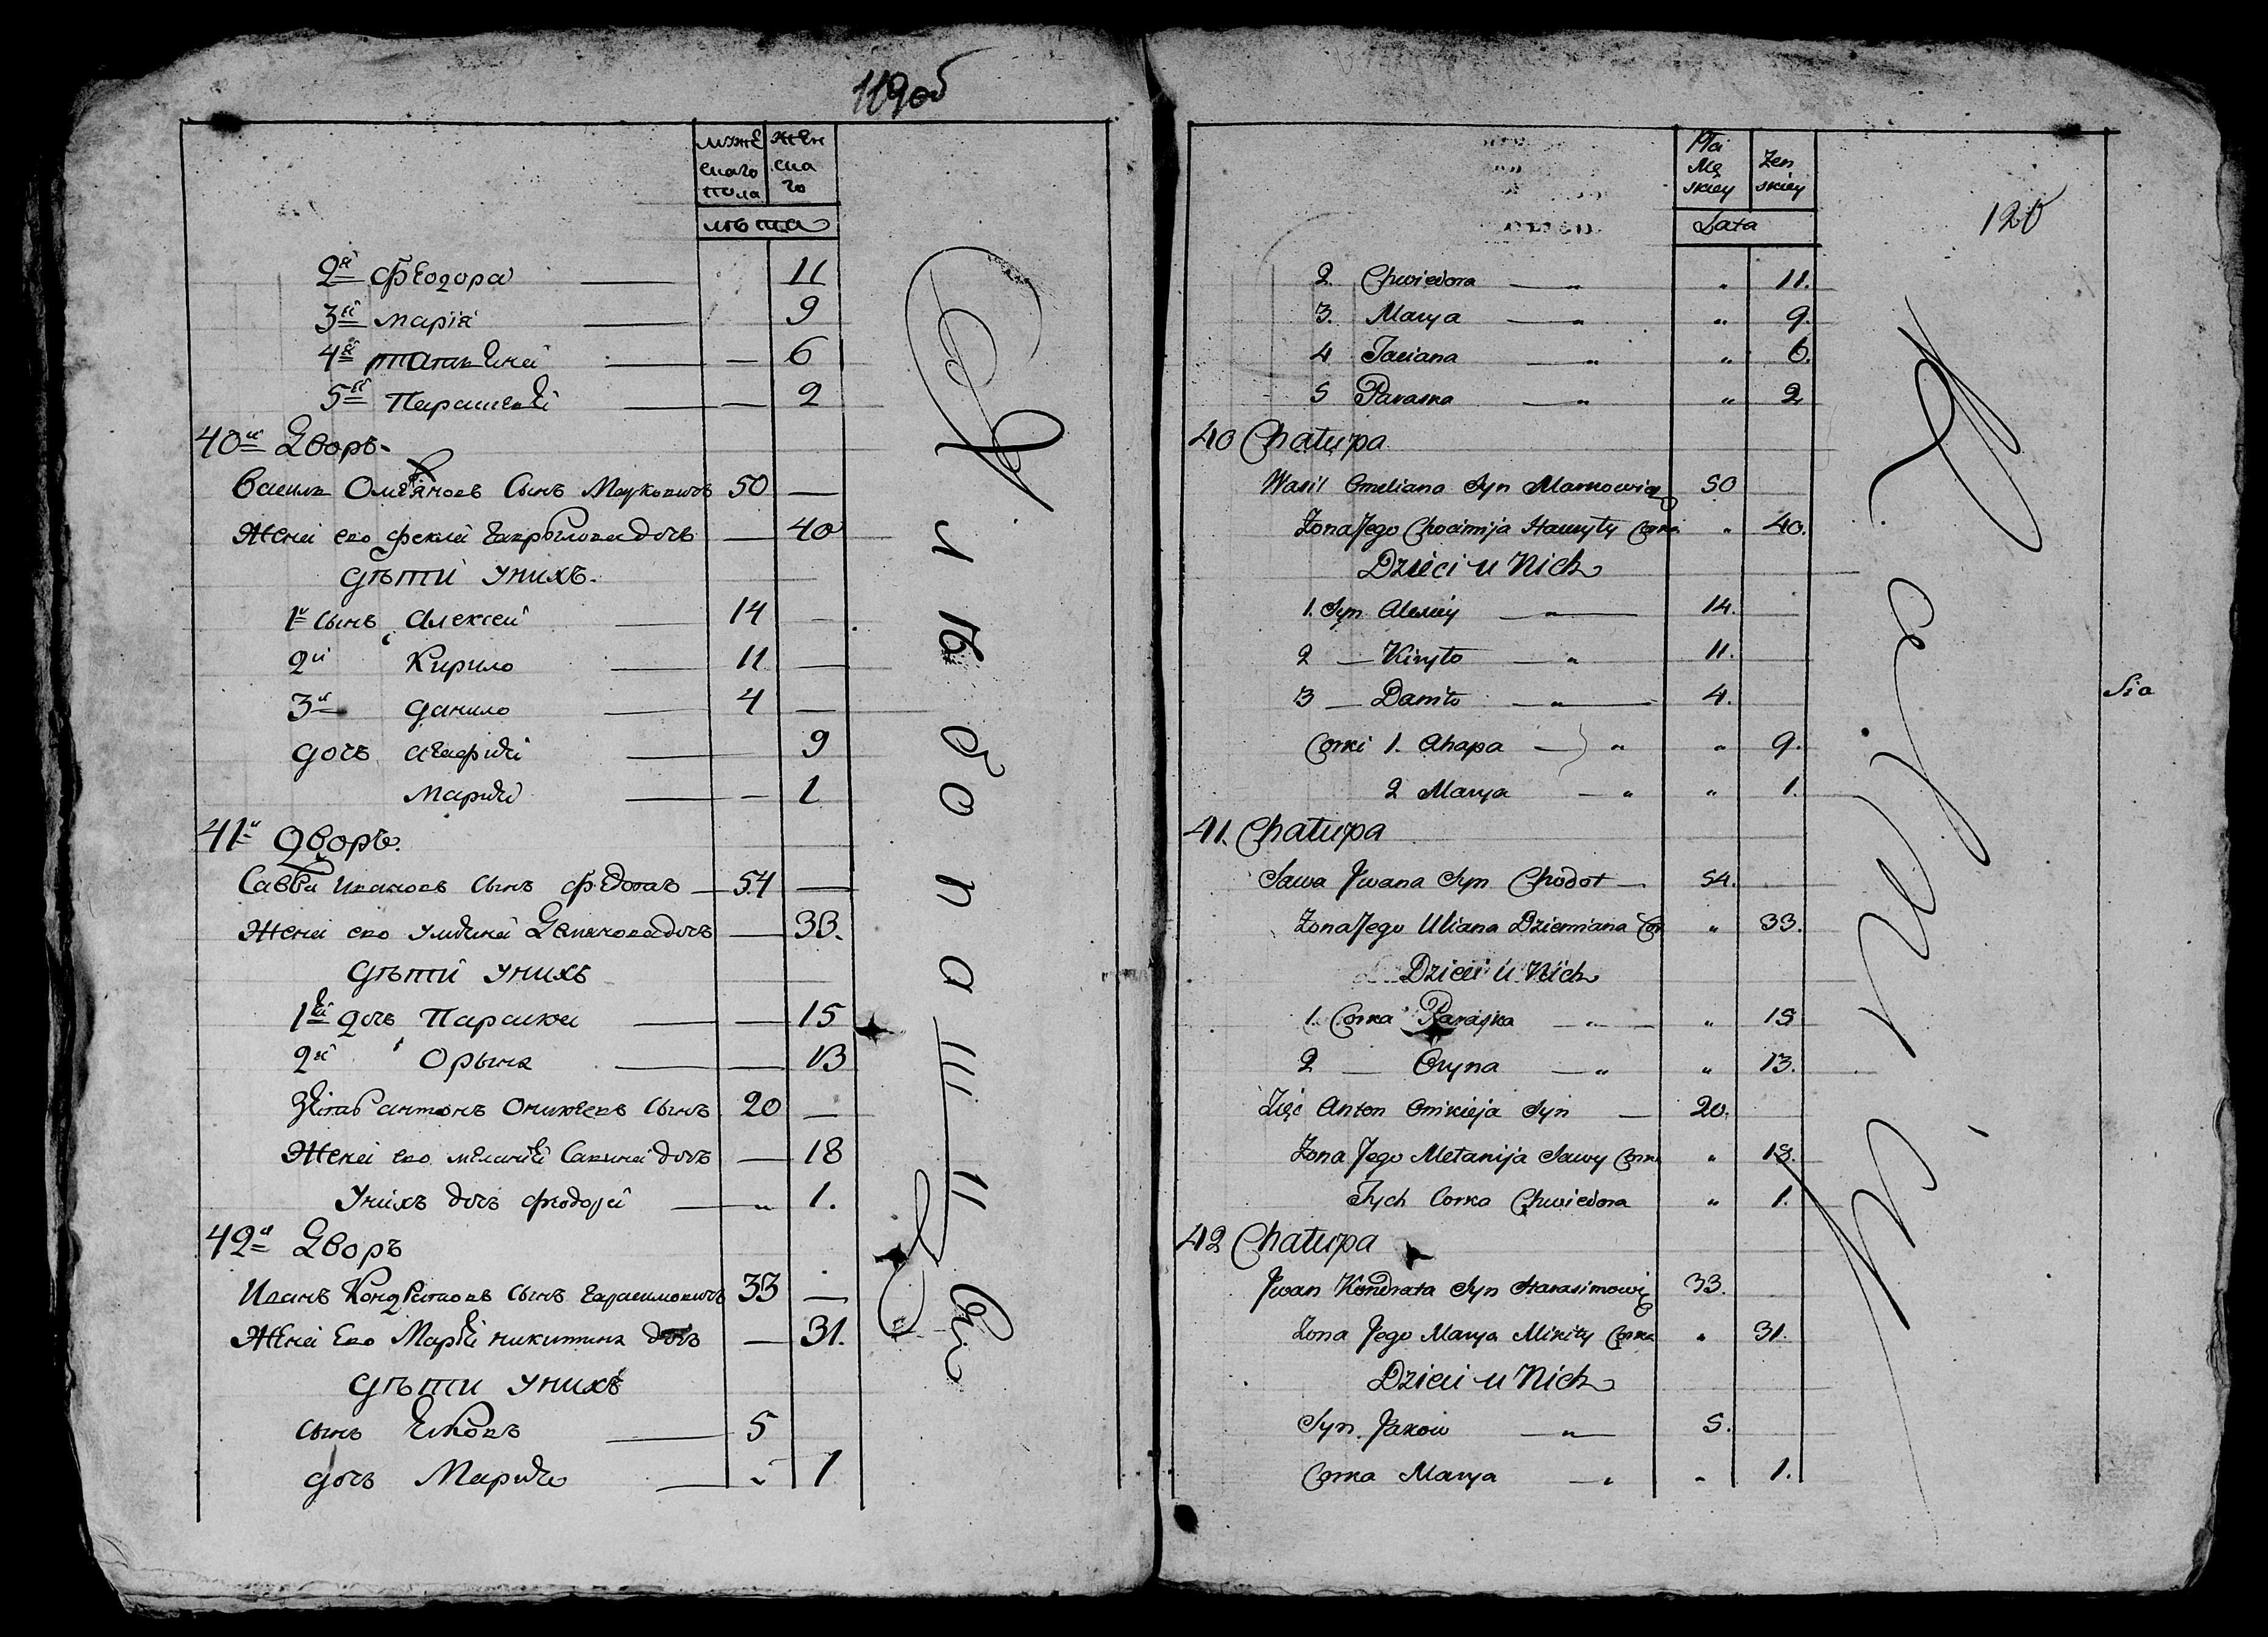 119об
мужескаго пола
женскаго
лѣта
2я Феодора 11
3я Марія 9
4я Татьяна 6
5я Парашка — 2
40й Дворъ
Василь Омеляновъ Сынъ Марковичъ 50 —
Жена ево Фекла Гаврылова дочь — 40
Дѣти унихъ
1й Сынъ Алексей 14 —
2й Кирило 11 —
3й Данило 4 —
дочь Агафия 9
Мария — 1
41й Дворъ
Савва Ивановъ Сынъ Федотъ 54 —
Жена ево Ульяна Демянова дочь — 33.
Дѣти унихъ
1я дочь Параска — 15
2я Орына — 13
Зять антонъ Оникеевъ Сынъ 20 —
Жена ево Мелания Савина дочь — 18
Унихъ дочь Феодора „ 1.
42й Дворъ
Иванъ Кондратовъ Сынъ Гарасимовичъ 33 —
Жена Ево Марья никитина дочь — 31.
Дѣти унихъ
Сынъ Яковъ 5
дочь Мария „ 1
120
Płci Męskiey
Zenskiey
Lata
2. Chwiedora „ „ 11.
3. Marya „ „ 9.
4 Taciana „ „ 6.
5 Paraska „ „ 2
40 Chałupa
Wasil Omeliana Syn Markowicz 50
Zona Jego Chocimija Hawryły Corka „ 40.
Dzieci u Nich
1. Syn Alexiey „ 14.
2 — Kiryło „ 11.
3 — Daniło „ 4.
Corki 1. Ahapa „ „ 9.
2 Marya „ „ 1.
41. Chałupa
Sawa Jwana Syn Chodot — 54.
Zona Jego Uliana Dziemiana Cor „ 33.
Dzieci u Nich
1. Corka Paraska „ „ 15
2 — Oryna „ „ 13.
Zięć Anton Onikieja Syn — 20.
Zona Jego Mełanija Sawy Corka „ 18.
Tych Corka Chwiedora „ 1.
42 Chałupa
Jwan Kondrata Syn Harasimowicz 33.
Zona Jego Marya Mikity Corka „ 31.
Dzieci u Nich
Syn Jakow „ 5.
Corka Marya „ „ 1.
Sia